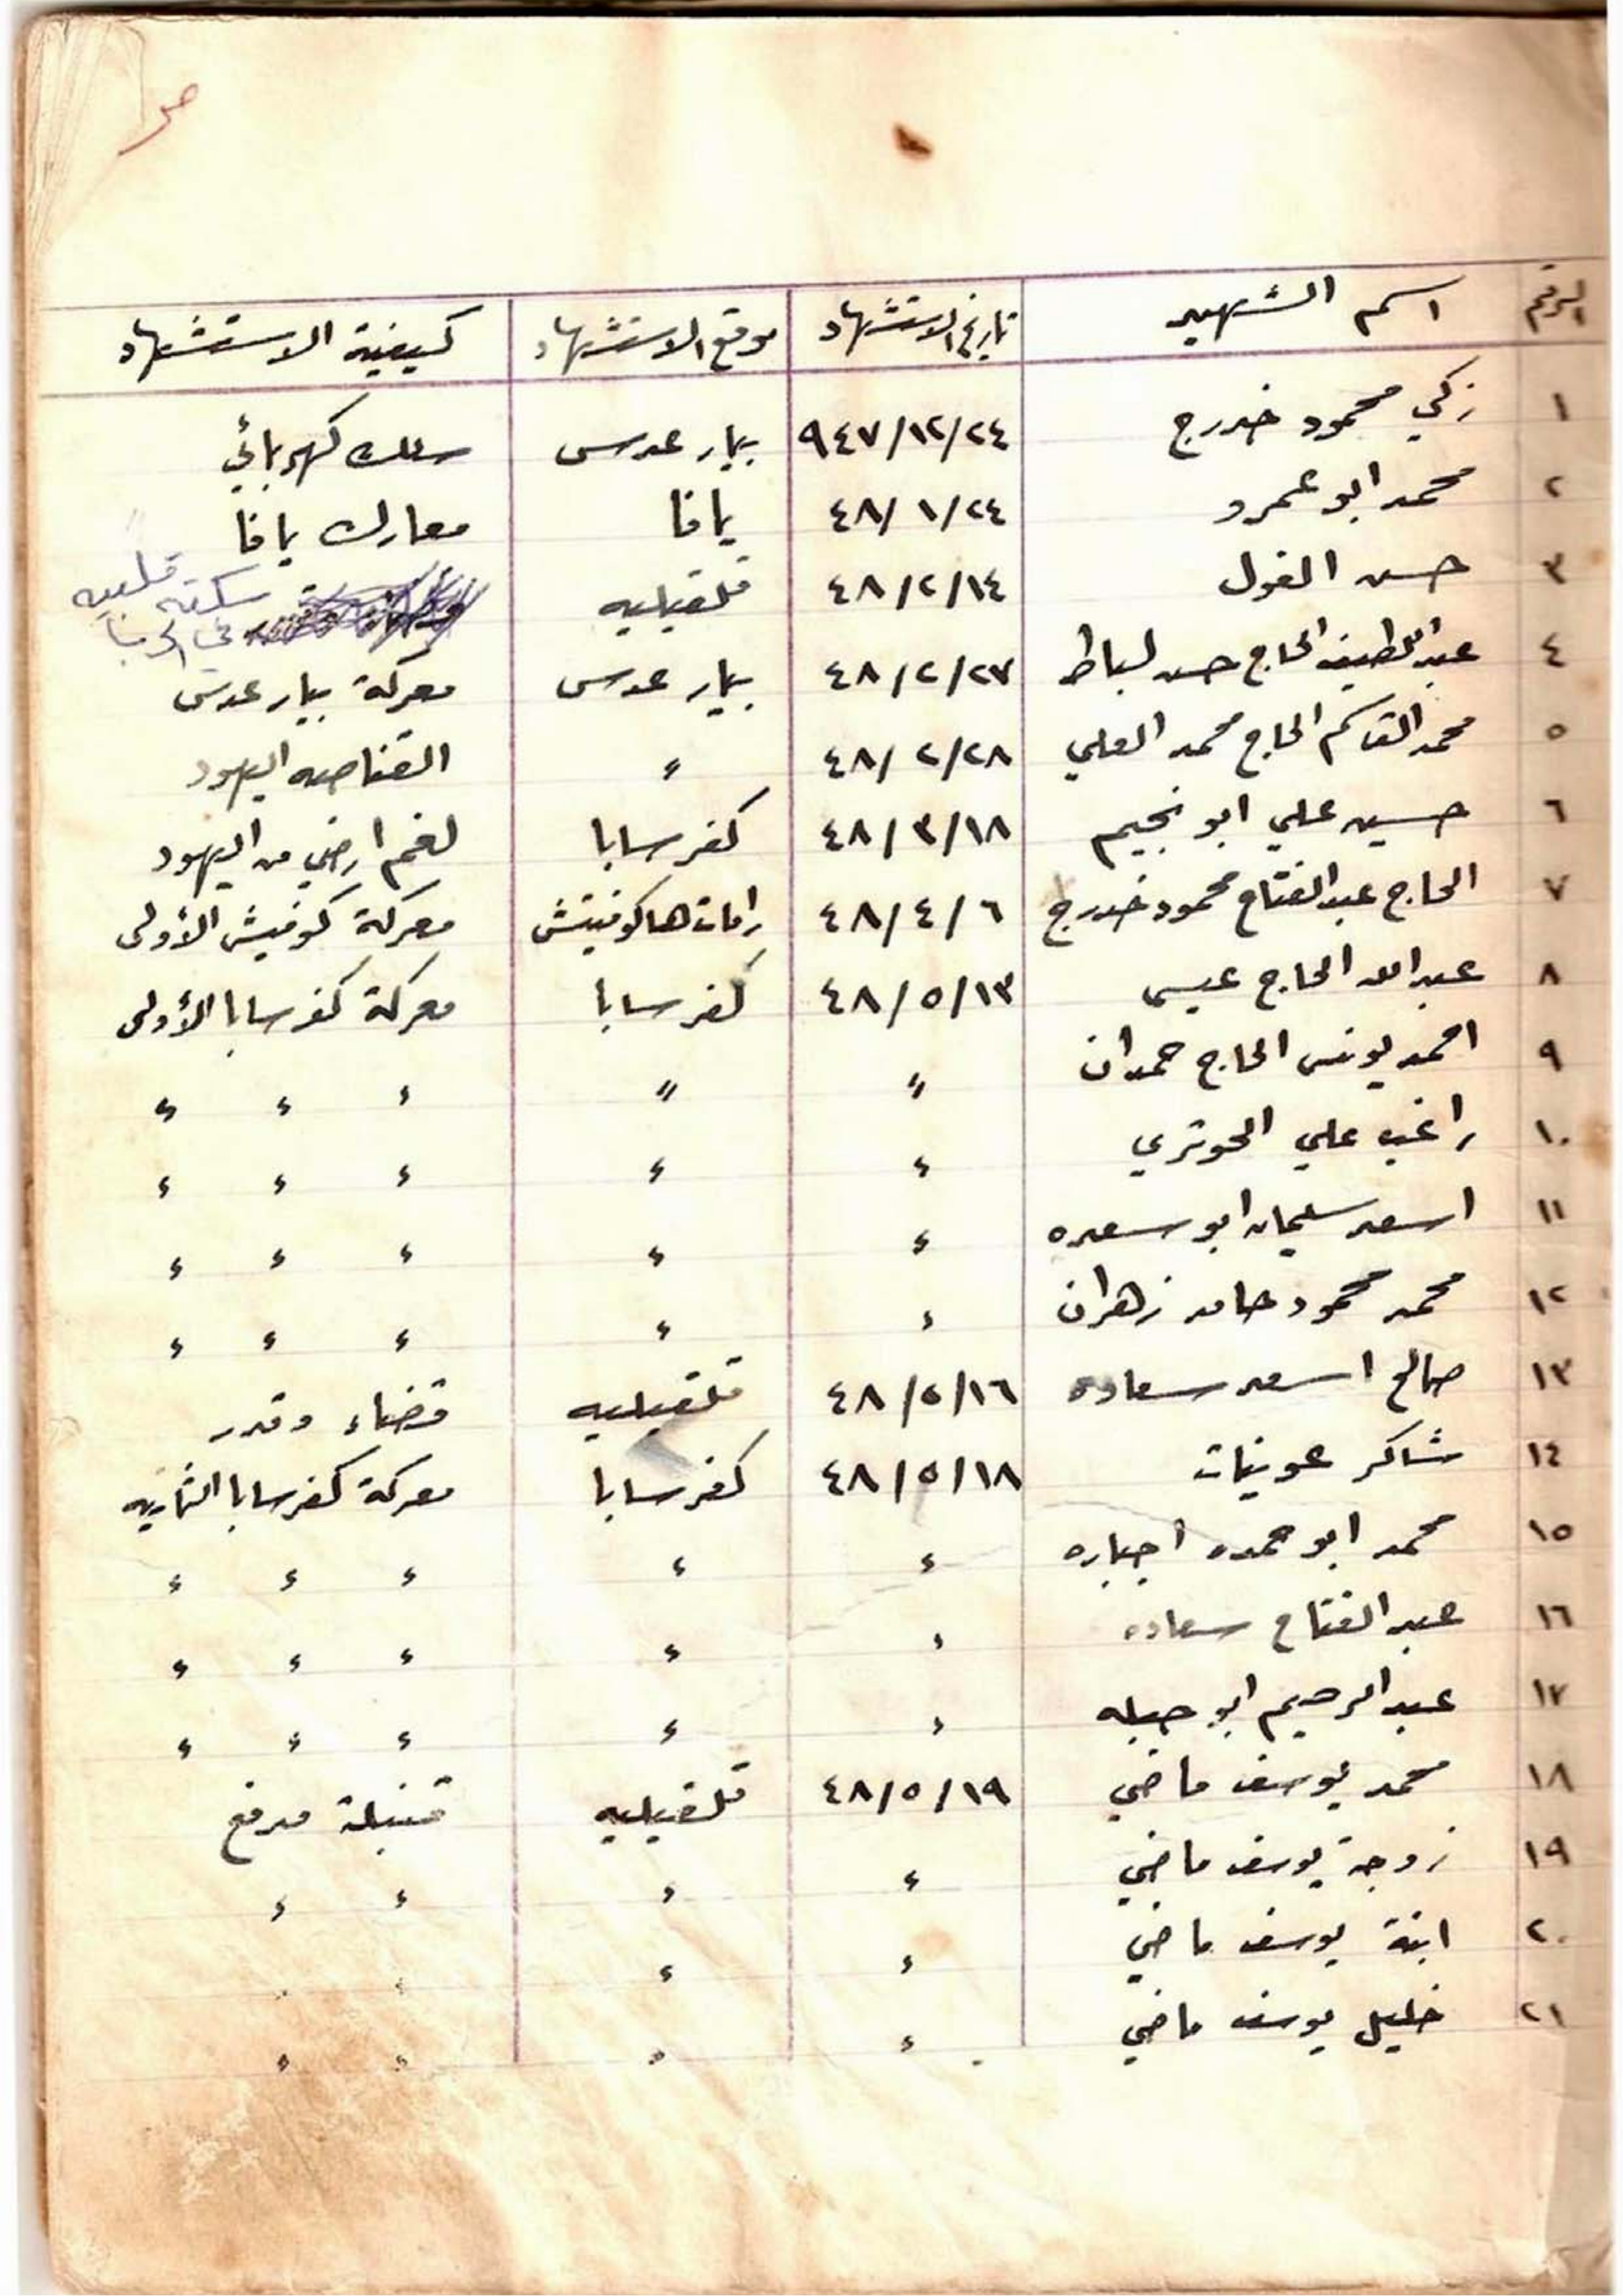 ص١
الرقم اسم الشهيد تاريخ الاستشهاد موقع الاستشهاد كيفية الاستشهاد
١ زكي محمود خدرج ٩٤٧/١٢/٢٤ بيار عدس سلك كهربائي
٢ محمد ابو عمرو ٤٨/١/٢٤ يافا معارك يافا
٣ حسن الغول ٤٨/٢/١٤ قلقيليه سكته قلبيه
٤ عبد اللطيف الحاج حسن لباط ٤٨/٢/٢٧ بيار عدس معركة بيار عدس
٥ محمد القاسم الحاج محمد العلي ٤٨/٢/٢٨ " القناصه اليهود
٦ حسين علي ابو نجيم ٤٨/٣/١٨ كفر سابا لغم ارضي من اليهود
٧ الحاج عبد الفتاح محمود خدرج ٤٨/٤/٦ رامات هاكوفيتش معركة كوفيش الأولى
٨ عبد الله الحاج عيسى ٤٨/٥/١٣ كفر سابا معركة كفر سابا الأولى
٩ احمد يونس الحاج حمدان " " " " "
١٠ راغب علي الحوتري " " " " "
١١ اسعد سليمان ابو سعده " " " " "
١٢ محمد محمود حامد زهران " " " " "
١٣ صالح اسعد سعاده ٤٨/٥/١٦ قلقيليه قضاء وقدر
١٤ شاكر عوينات ٤٨/٥/١٨ كفر سابا معركة كفر سابا الثانيه
١٥ محمد ابو حمده اجباره " " " " "
١٦ عبد الفتاح سعاده " " " " "
١٧ عبد الرحيم ابو حبله " " " " "
١٨ محمد يوسف ماضي ٤٨/٥/١٩ قلقيليه قنبلة مدفع
١٩ زوجة يوسف ماضي " " " "
٢٠ ابنة يوسف ماضي " " " "
٢١ خليل يوسف ماضي " " " "